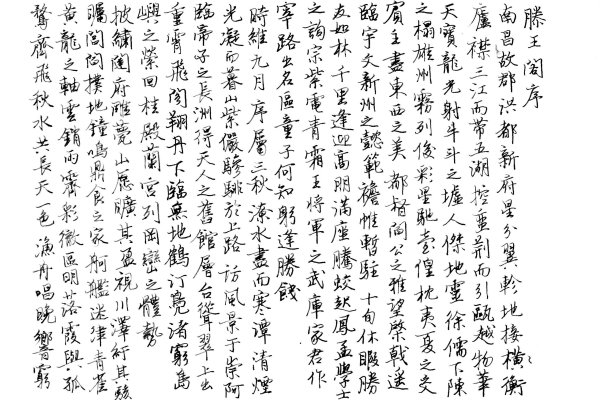 滕王閣序
南昌故郡洪都新府星分翼軫地接橫衡
廬襟三江而帶五湖控蠻荊而引甌越物華
天寶龍光射牛斗之墟人傑地靈徐孺下陳
之榻雄州霧列俊彩星馳臺隍枕夷夏之交
賓主盡東南之美都督閻公之雅望棨戟遙
臨宇文新州之懿範襜帷暫駐十旬休暇勝
友如林千里逢迎高朋滿座騰蛟起鳳孟學士
之詞宗紫電青霜王將軍之武庫家君作
宰路出名區童子何知躬逢勝餞
時維九月序屬三秋潦水盡而寒潭清煙
光凝而暮山紫儼驂騑於上路訪風景于崇阿
臨帝子之長洲得天人之舊館層台聳翠上出
重霄飛閣翔丹下臨無地鶴汀鳧渚窮島
嶼之縈回桂殿蘭宮列岡巒之體勢
披繡闥俯雕甍山原曠其盈視川澤紆其駭
矚閭閻撲地鐘鳴鼎食之家舸艦迷津青雀
黃龍之軸雲銷雨霽彩徹區明落霞與孤
鶩齊飛秋水共長天一色漁舟唱晚響窮